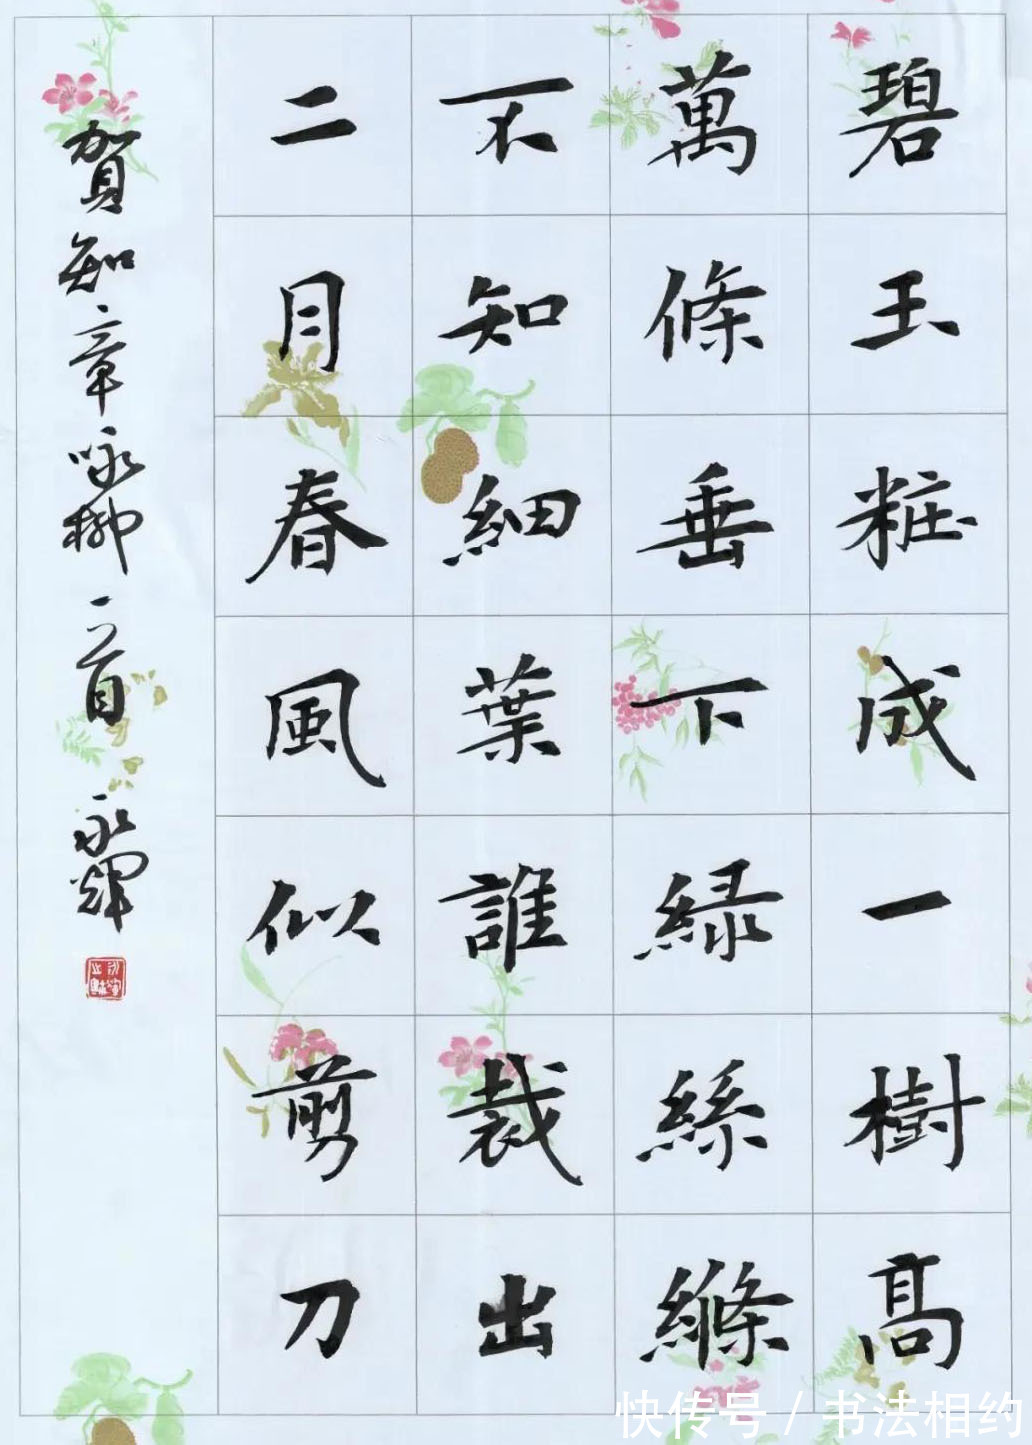 碧玉粧成一樹高
萬條垂下緑絲縧
不知細葉誰裁出
二月春風似剪刀
賀知章咏柳一首 永輝
快传号 / 书法相约